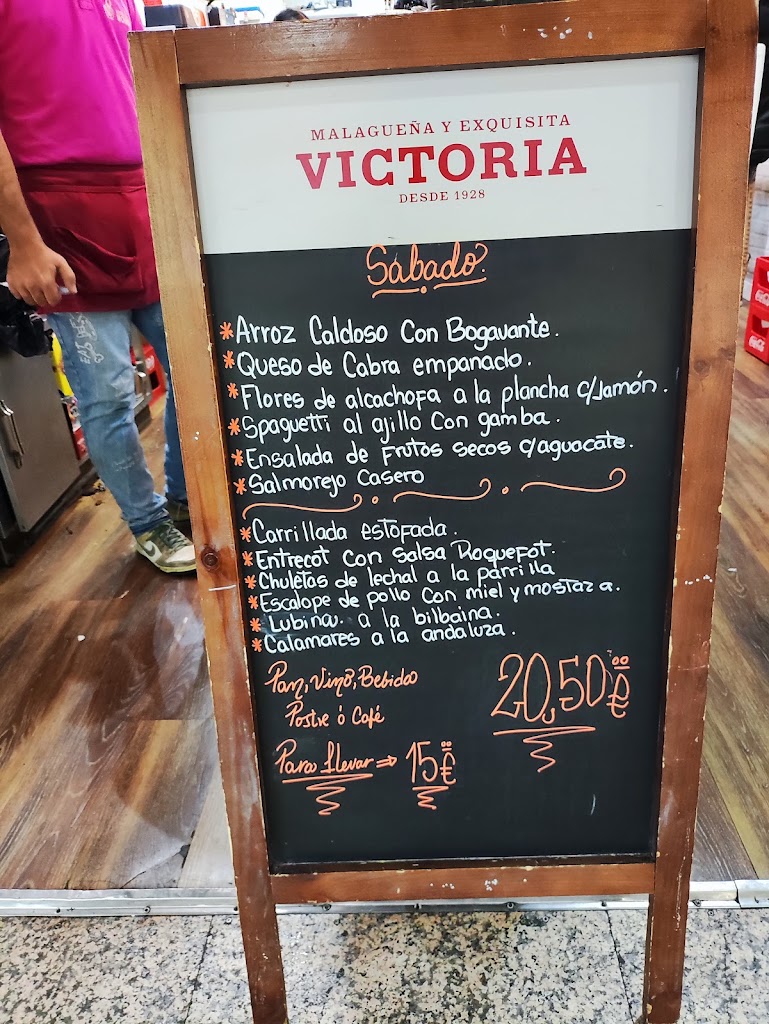 MALAGUEÑA Y EXQUISITA
VICTORIA
DESDE 1928
Sábado.
*Arroz Caldoso Con Bogavante.
*Queso de Cabra empanado.
*Flores de alcachofa a la plancha c/Jamón.
*Spaguetti al ajillo Con gamba.
*Ensalada de Frutos secos c/aguacate.
*Salmorejo Casero
*Carrillada estofada.
*Entrecot con salsa Roquefot.
*Chuletas de lechal a la parrilla
*Escalope de pollo con miel y mostaza.
*Lubina a la bilbaina.
*Calamares a la andaluza.
Pan, Vino, Bebida
Postre ó Café
20,50€
Para llevar⇒ 15€